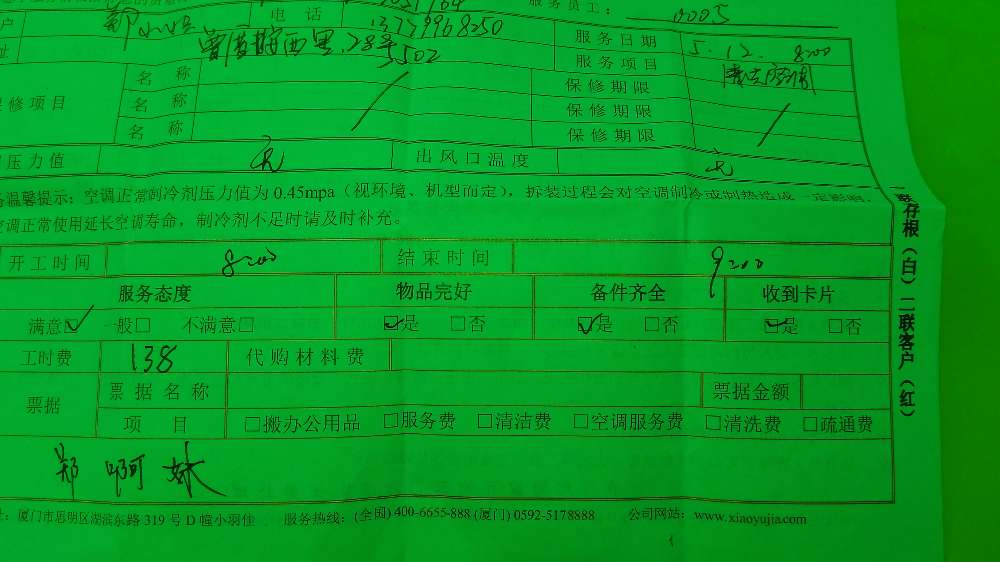 服务员工： 0005
户 郑 电话 13779968250
址 5502 服务日期 5.12. 8:00
名称 保修期限 服务项目
保修项目 名称 保修期限
名称 保修期限
压力值 无 出风口温度 无
温馨提示：空调正常制冷剂压力值为 0.45mpa（视环境、机型而定），拆装过程会对空调制冷或制热造成一定影响，
空调正常使用延长空调寿命，制冷剂不足时请及时补充。
开工时间 8:00 结束时间 9:00
服务态度 物品完好 备件齐全 收到卡片
满意☑ 一般□ 不满意□ ☑是 □否 ☑是 □否 ☑是 □否
工时费 138 代购材料费
票据 票据名称 票据金额
项目 □搬办公用品 □服务费 □清洁费 □空调服务费 □清洗费 □疏通费
郑 啊 妹
址：厦门市思明区湖滨东路 319 号 D 幢小羽佳 服务热线：(全国) 400-6655-888 (厦门) 0592-5178888 公司网站：www.xiaoyujia.com
存根（白）二联客户（红）